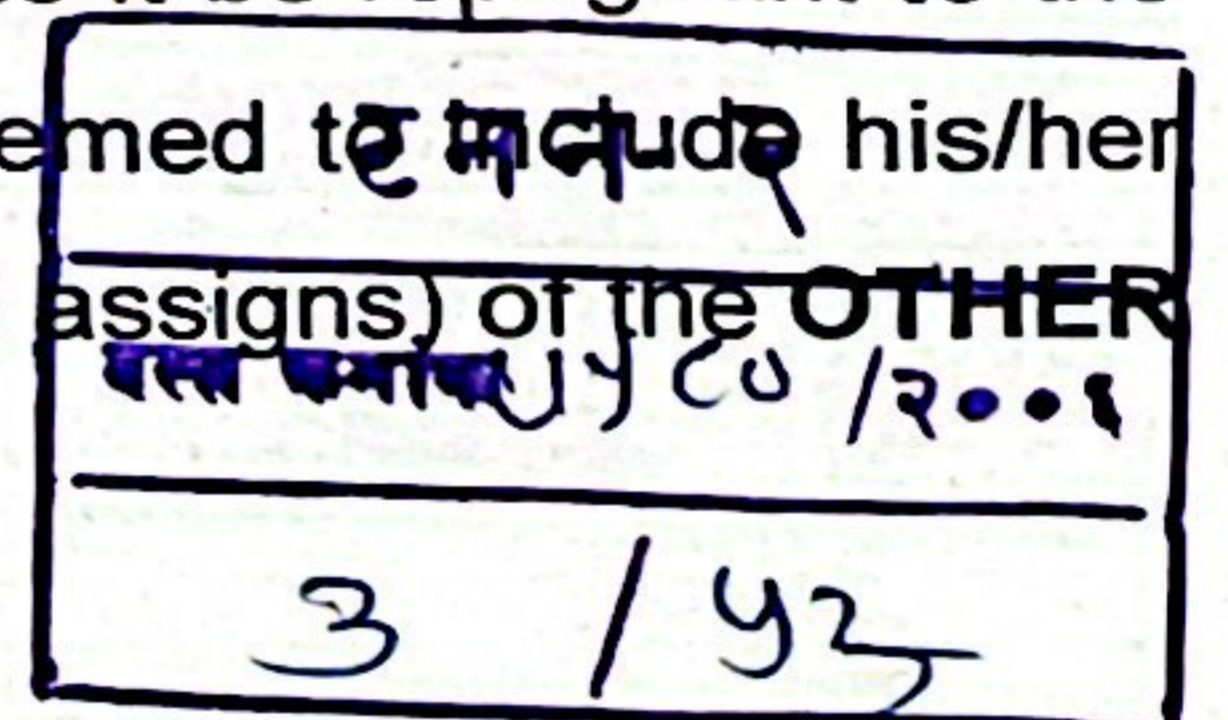 emed to include his/her
assigns) of the OTHER
दस्त क्रमांक ७५८७ /२००९
३ / ५२